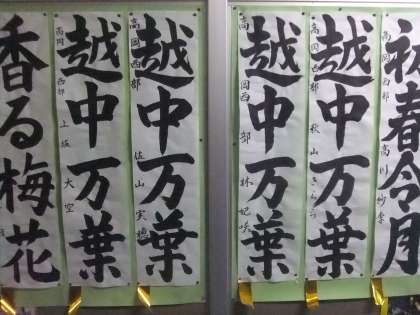 初春令月
高岡西部 高川紗季
越中万葉
高岡西部 秋山さらら
越中万葉
高岡西部 林妃咲
越中万葉
高岡西部 佐山実穂
越中万葉
高岡西部 上坂大空
香る梅花